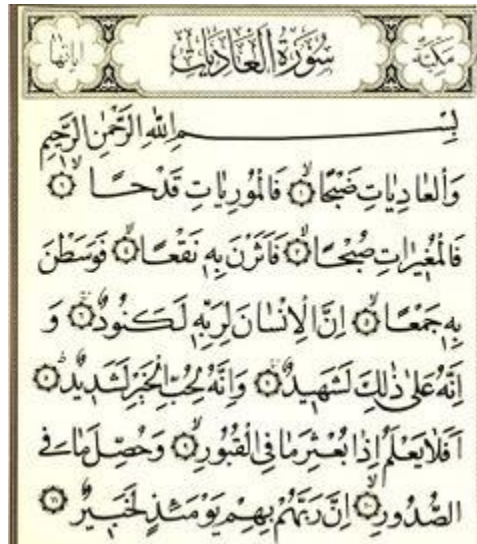 مكية سورة العاديات اياتها ١١
بِسْمِ اللهِ الرَّحْمٰنِ الرَّحِيمِ
وَالْعَادِيَاتِ ضَبْحًا ١ فَالْمُورِيَاتِ قَدْحًا ٢
فَالْمُغِيرَاتِ صُبْحًا ٣ فَاَثَرْنَ بِهٖ نَقْعًا ٤ فَوَسَطْنَ
بِهٖ جَمْعًا ٥ اِنَّ الْاِنْسَانَ لِرَبِّهٖ لَكَنُودٌ ٦ وَ
اِنَّهُ عَلٰى ذٰلِكَ لَشَهِيدٌ ٧ وَاِنَّهُ لِحُبِّ الْخَيْرِ لَشَدِيدٌ ٨
اَفَلَا يَعْلَمُ اِذَا بُعْثِرَ مَا فِي الْقُبُورِ ٩ وَحُصِّلَ مَا فِي
الصُّدُورِ ١٠ اِنَّ رَبَّهُمْ بِهِمْ يَوْمَئِذٍ لَخَبِيرٌ ١١